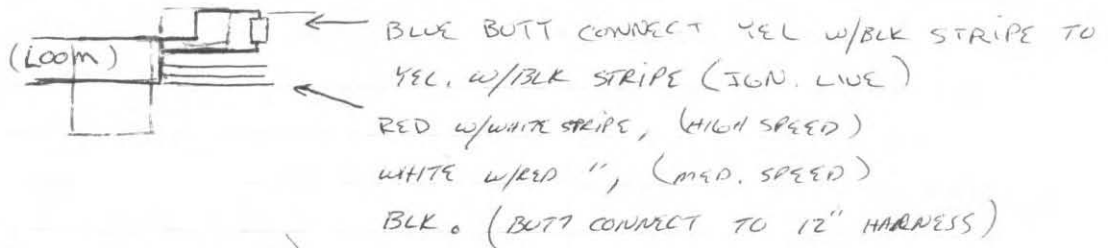 (LOOM)
BLUE BUTT CONNECT YEL W/BLK STRIPE TO
YEL. W/BLK STRIPE (IGN. LINE)
RED W/WHITE STRIPE, (HIGH SPEED)
WHITE W/RED ", (MED. SPEED)
BLK. (BUTT CONNECT TO 12" HARNESS)